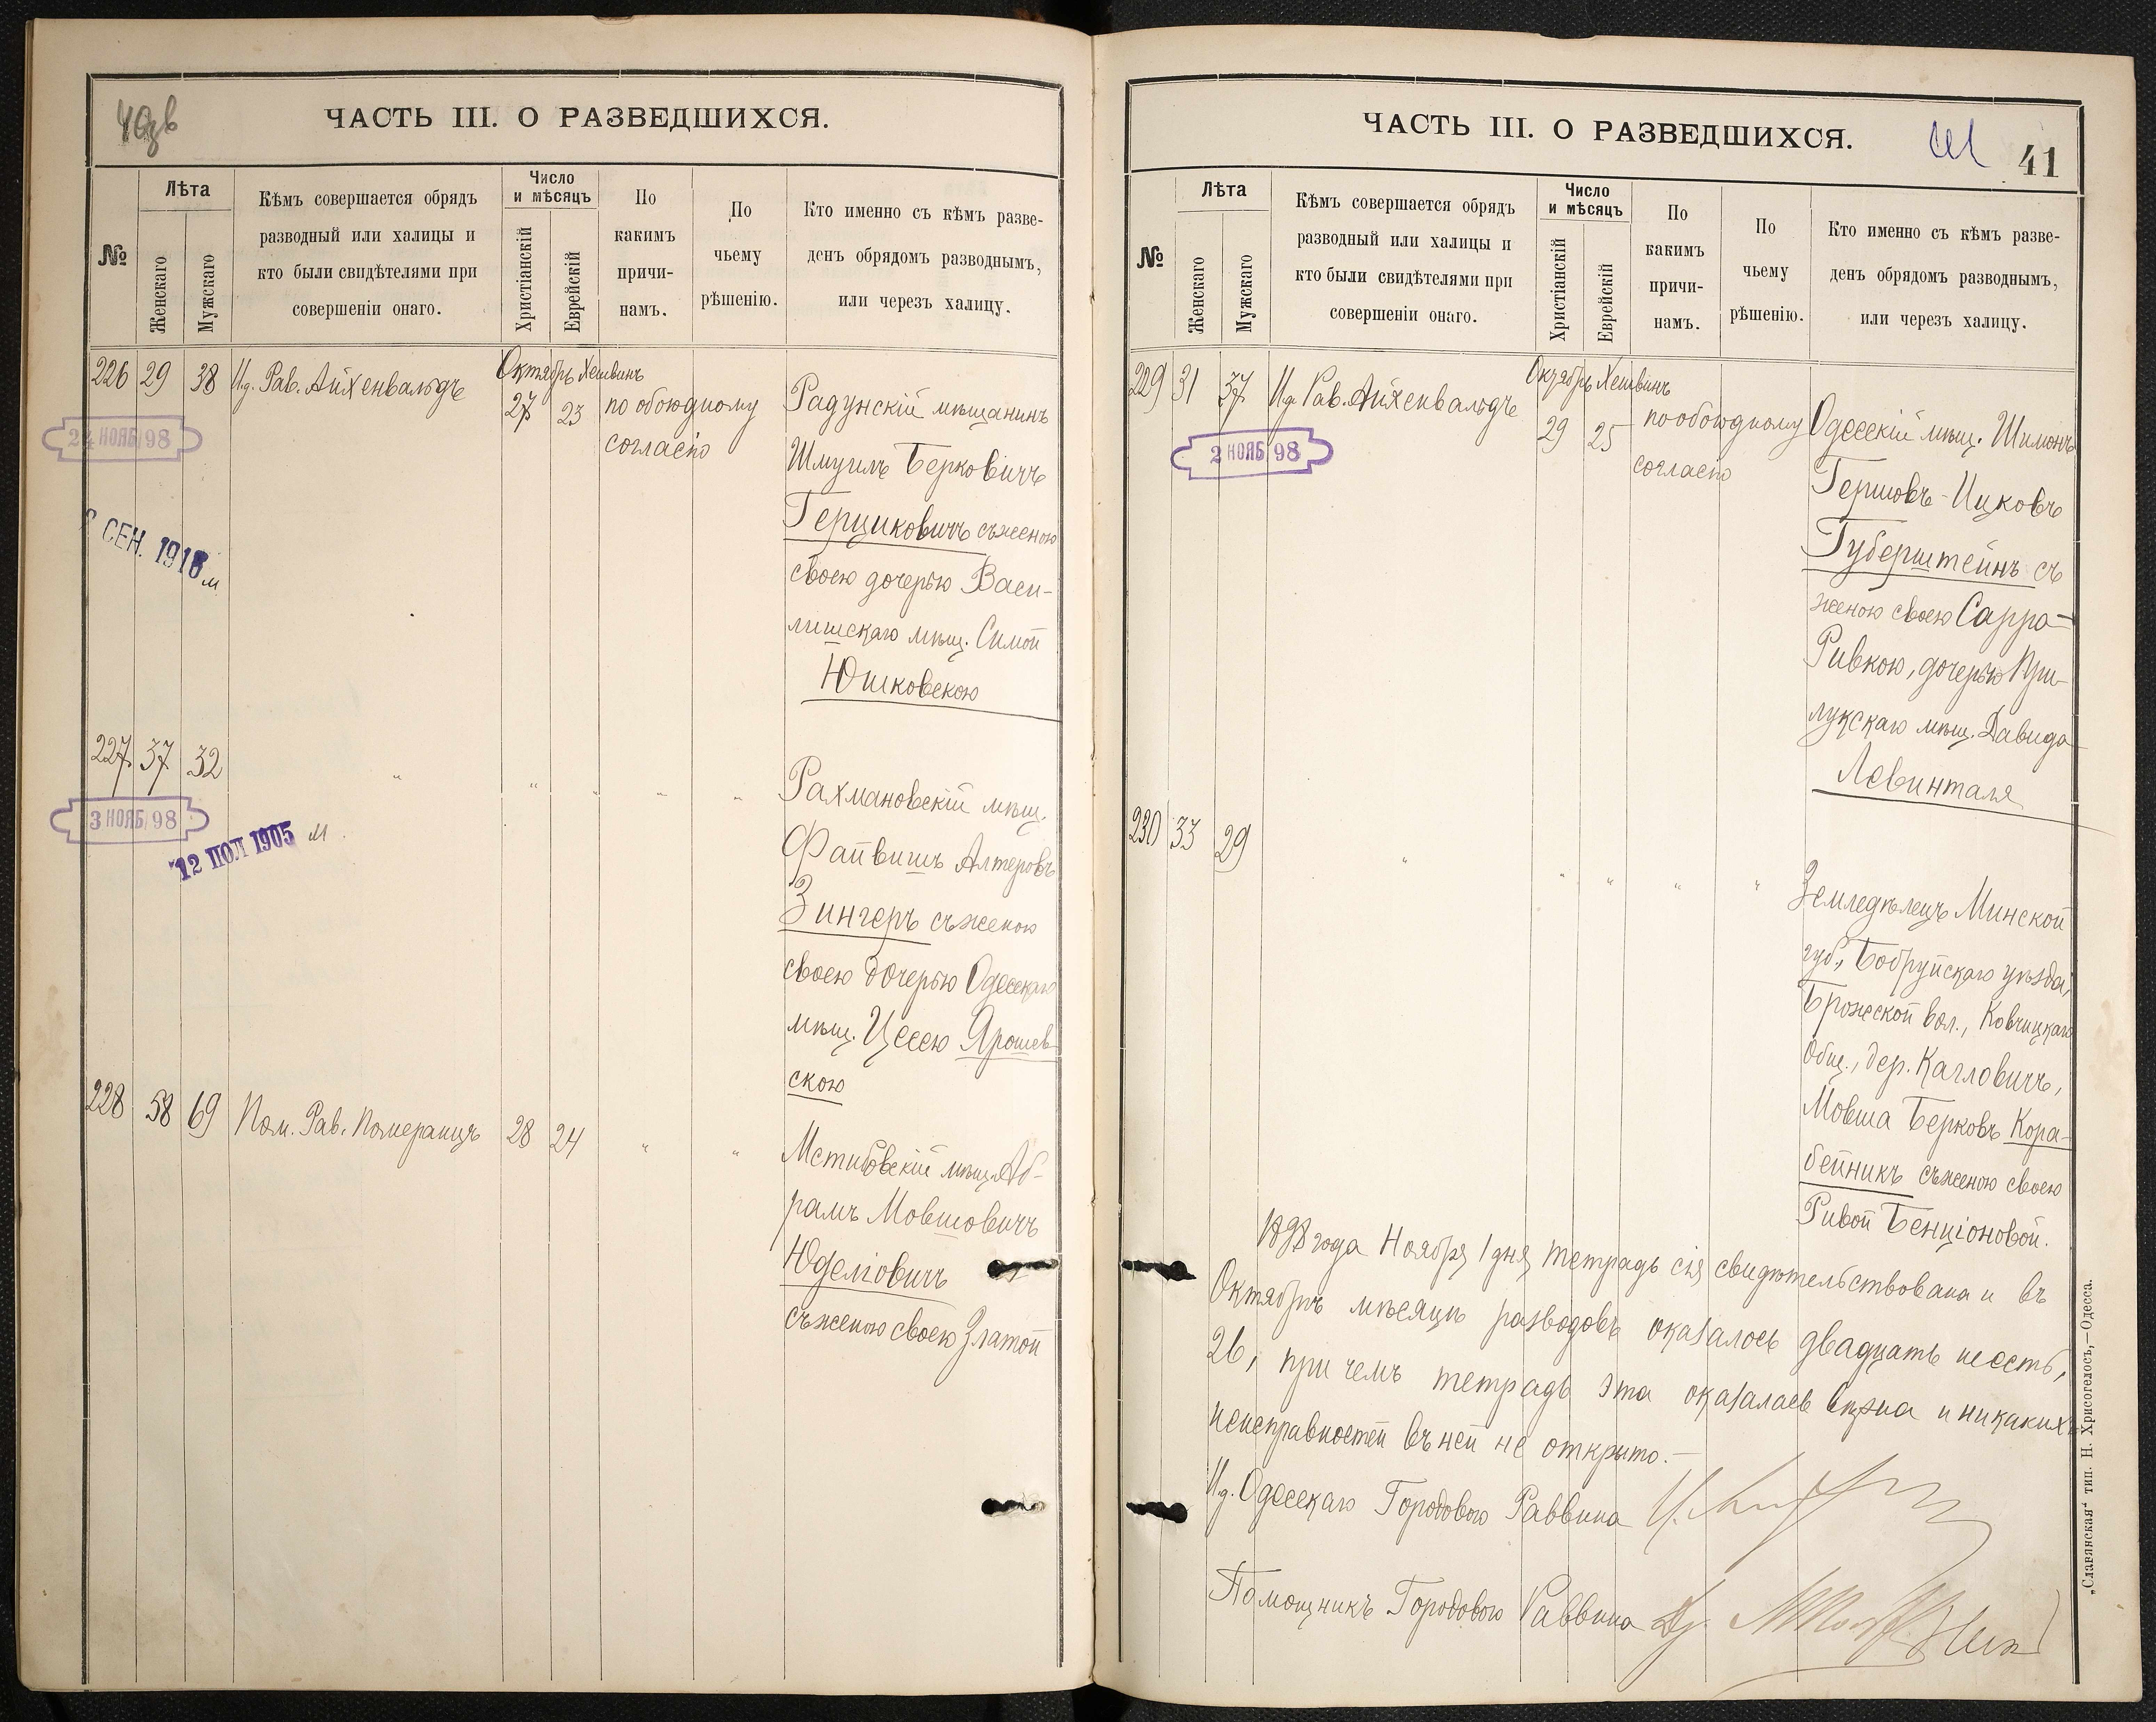 ЧАСТЬ III. О РАЗВЕДШИХСЯ.
№
Лѣта
Женскаго
Мужскаго
Кѣмъ совершается обрядъ
разводный или халицы и
кто были свидѣтелями при
совершеніи онаго.
Число
и мѣсяцъ
Христіанскій
Еврейскій
По
какимъ
причи-
намъ.
По
чьему
рѣшенію.
Кто именно съ кѣмъ разве-
денъ обрядомъ разводнымъ,
или черезъ халицу.
226 29 38 И.д. Рав. Айхенвальдъ
Октябрь Хешвинъ
27 23
по обоюдному
согласію
Радунскій мѣщанинъ
Шмуилъ Берковичъ
Герциковичъ съ женою
своею дочерью Васи-
лишскаго мѣщ. Симой
Юшковскою
24 НОЯБ 98
СЕН. 1916 м
227 37 32 " " " " "
Рахмановскій мѣщ.
Файвишъ Алтеровъ
Зингеръ съ женою
своею дочерью Одесскаго
мѣщ. Цесею Ярошев-
скою
3 НОЯБ 98
12 ІЮЛ 1905 м
228 58 69 Пом. Рав. Померанцъ 28 24 " "
Мстибовскій мѣщ. Аб-
рамъ Мовшовичъ
Юделіовичъ
съ женою своею Златой
ЧАСТЬ III. О РАЗВЕДШИХСЯ.
41
№
Лѣта
Женскаго
Мужскаго
Кѣмъ совершается обрядъ
разводный или халицы и
кто были свидѣтелями при
совершеніи онаго.
Число
и мѣсяцъ
Христіанскій
Еврейскій
По
какимъ
причи-
намъ.
По
чьему
рѣшенію.
Кто именно съ кѣмъ разве-
денъ обрядомъ разводнымъ,
или черезъ халицу.
229 31 37 И.д. Рав. Айхенвальдъ
Октябрь Хешвинъ
29 25
по обоюдному
согласію
Одесскій мѣщ. Шимонъ
Гершовъ-Ицковъ
Губерштейнъ съ
женою своею Сарра-
Ривкою, дочерью При-
лукскаго мѣщ. Давида
Левинталя
2 НОЯБ 98
230 33 29 " " " " "
Земледѣлецъ Минской
губ., Бобруйскаго уѣзда,
Брожской вол., Ковчицкаго
общ., дер. Кагловичъ,
Мовша Берковъ Кора-
бейникъ съ женою своею
Ривой Бенціоновой.
1898 года Ноября 1 дня тетрадь сія свидѣтельствована и въ
Октябрѣ мѣсяцѣ разводовъ оказалось двадцать шесть,
26, при чемъ тетрадь эта оказалась вѣрна и никакихъ
неисправностей въ ней не открыто.-
И.д. Одесскаго Городового Раввина
Помощникъ Городового Раввина
„Славянская“ тип. Н. Хрисогелосъ,—Одесса.